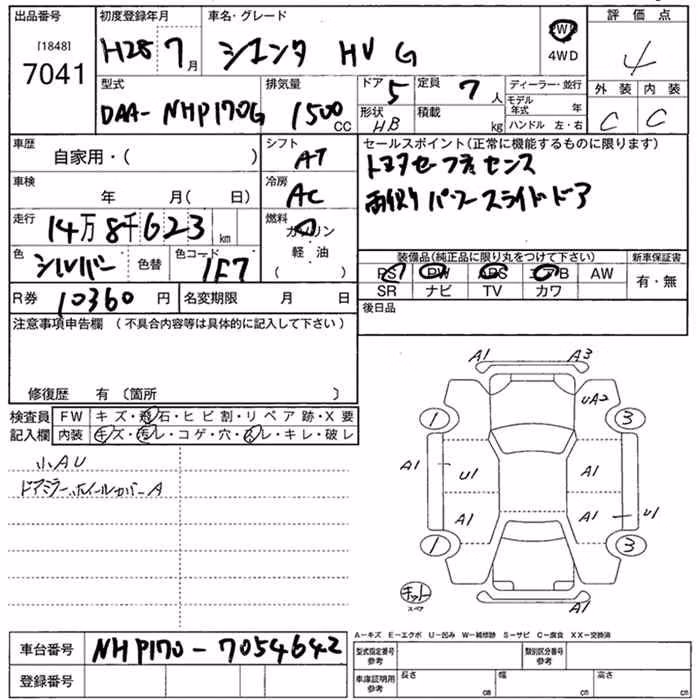 出品番号 初度登録年月 車名・グレード 評価点
[1848]
7041 H28 7月 シエンタ HV G 2WD 4WD 4
型式 排気量 ドア 5 定員 7人 ディーラー・並行 外装 内装
DAA-NHP170G 1500cc 形状 HB 積載 kg モデル年式 年 C C
ハンドル 左・右
車歴 自家用・( ) シフト AT セールスポイント(正常に機能するものに限ります)
トヨタセーフティセンス
車検 年 月( 日) 冷房 AC 両側パワースライドドア
走行 14万8千623km 燃料 ガソリン 軽油 ( )
色 シルバー 色替 色コード 1F7 装備品(純正品に限り丸をつけて下さい) 新車保証書
PS PW ABS エアB AW 有・無
SR ナビ TV カワ
R券 10360円 名変期限 月 日 後日品
注意事項申告欄(不具合内容等は具体的に記入して下さい)
修復歴 有〔箇所 〕
検査員 FW キズ・飛石・ヒビ割・リペア跡・X要
記入欄 内装 キズ・汚レ・コゲ・穴・スレ・キレ・破レ
小AU
ドアミラーホイールカバーA
A1 A3
UA2
1 3
A1 U1 A1
A1 A1 U1
1 3
キット
スペア
A1
A−キズ E−エクボ U−凹み W−補修跡 S−サビ C−腐食 XX−交換済
車台番号 NHP170-7054642 型式指定番号 参考 類別区分番号 参考
登録番号 車庫証明用 参考 長さ cm 幅 cm 高さ cm